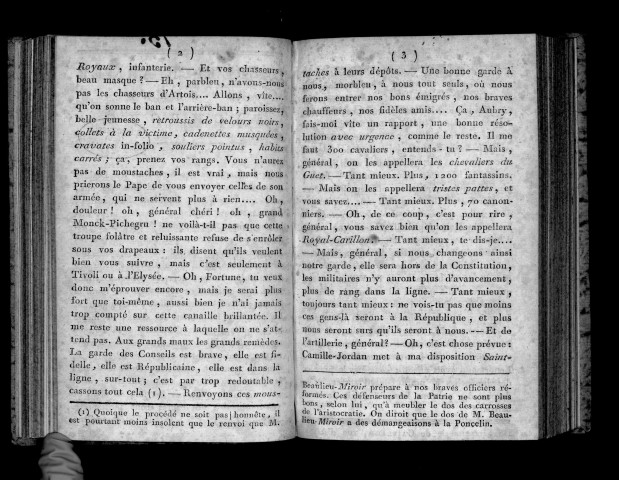 ( 2 )
Royaux, infanterie. — Et vos chasseurs,
beau masque ? — Eh, parbleu, n'avons-nous
pas les chasseurs d'Artois.... Allons, vîte....
qu'on sonne le ban et l'arrière-ban ; paroissez,
belle jeunesse, retroussis de velours noirs,
collets à la victime, cadenettes musquées,
cravates in-folio, souliers pointus, habits
carrés ; ça, prenez vos rangs. Vous n'aurez
pas de moustaches, il est vrai, mais nous
prierons le Pape de vous envoyer celles de son
armée, qui ne servent plus à rien.... Oh,
douleur ! oh, général chéri ! oh, grand
Monck-Pichegru ! ne voilà-t-il pas que cette
troupe folâtre et reluissante refuse de s'enrôler
sous vos drapeaux : ils disent qu'ils veulent
bien vous suivre, mais c'est seulement à
Tivoli ou à l'Elysée. — Oh, Fortune, tu veux
donc m'éprouver encore, mais je serai plus
fort que toi-même, aussi bien je n'ai jamais
trop compté sur cette canaille brillantée. Il
me reste une ressource à laquelle on ne s'at-
tend pas. Aux grands maux les grands remèdes.
La garde des Conseils est brave, elle est fi-
delle, elle est Républicaine, elle est dans la
ligne, sur-tout ; c'est par trop redoutable,
cassons tout cela (1). — Renvoyons ces mous-
(1) Quoique le procédé ne soit pas honnête, il
est pourtant moins insolent que le renvoi que M.
( 3 )
taches à leurs dépôts. — Une bonne garde à
nous, morbleu, à nous tout seuls, où nous
ferons entrer nos bons émigrés, nos braves
chauffeurs, nos fidèles amis.... Ça, Aubry,
fais-moi vîte un rapport, une bonne réso-
lution avec urgence, comme le reste. Il me
faut 300 cavaliers, entends-tu ? — Mais,
général, on les appellera les chevaliers du
Guet. — Tant mieux. Plus, 1200 fantassins.
— Mais on les appellera tristes pattes, et
vous savez.... — Tant mieux. Plus, 70 canon-
niers. — Oh, de ce coup, c'est pour rire,
général, vous savez bien qu'on les appellera
Royal-Carillon. — Tant mieux, te dis-je....
— Mais, général, si nous changeons ainsi
notre garde, elle sera hors de la Constitution,
les militaires n'y auront plus d'avancement,
plus de rang dans la ligne. — Tant mieux,
toujours tant mieux : ne vois-tu pas que moins
ces gens-là seront à la République, et plus
nous seront surs qu'ils seront à nous. — Et de
l'artillerie, général ? — Oh, c'est chose prévue :
Camille-Jordan met à ma disposition Saint-
Beaulieu-Miroir prépare à nos braves officiers ré-
formés. Ces défenseurs de la Patrie ne sont plus
bons, selon lui, qu'à meubler le dos des carrosses
de l'aristocratie. On diroit que le dos de M. Beau-
lieu-Miroir a des démangeaisons à la Poncelin.